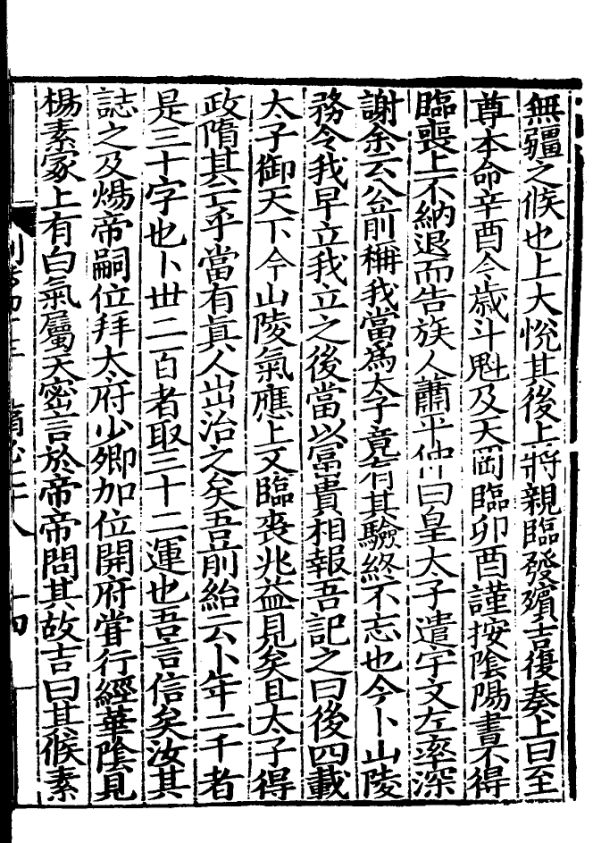 無疆之候也上大悅其後上將親臨發殯吉復奏上曰至
尊本命辛酉今歲斗魁及天岡臨卯酉謹按陰陽書不得
臨喪上不納退而告族人蕭平仲曰皇太子遣宇文左率深
謝余云公前稱我當爲太子竟有其驗終不忘也今卜山陵
務令我早立我立之後當以富貴相報吾記之曰後四載
太子御天下今山陵氣應上又臨喪兆益見矣且太子得
政隋其亡乎當有真人出治之矣吾前紿云卜年二千者
是三十字也卜世二百者取三十二運也吾言信矣汝其
誌之及煬帝嗣位拜太府少卿加位開府甞行經華陰見
楊素冢上有白氣屬天密言於帝帝問其故吉曰其候素
十四